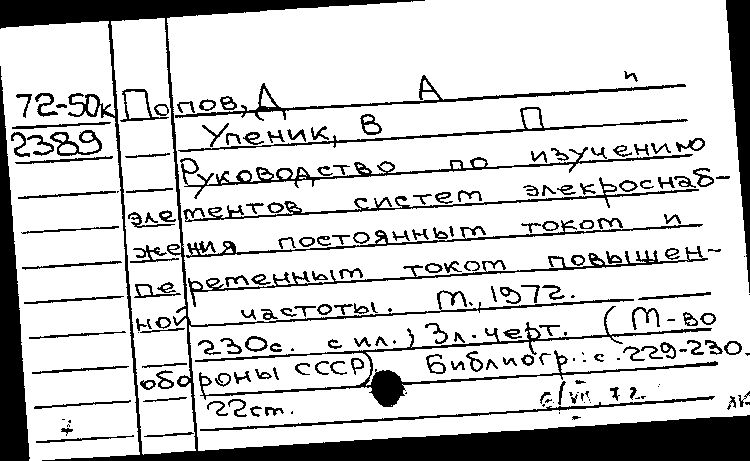 72-50к Попов, Д А и
2389 Упеник, В П
Руководство по изучению
элементов систем элекроснаб-
жения постоянным током и
переменным током повышен-
ной частоты. М., 1972.
230с. с ил.; 3л. черт. (М-во
обороны СССР) Библиогр.: с. 229-230.
22см. 6/VII, 72.